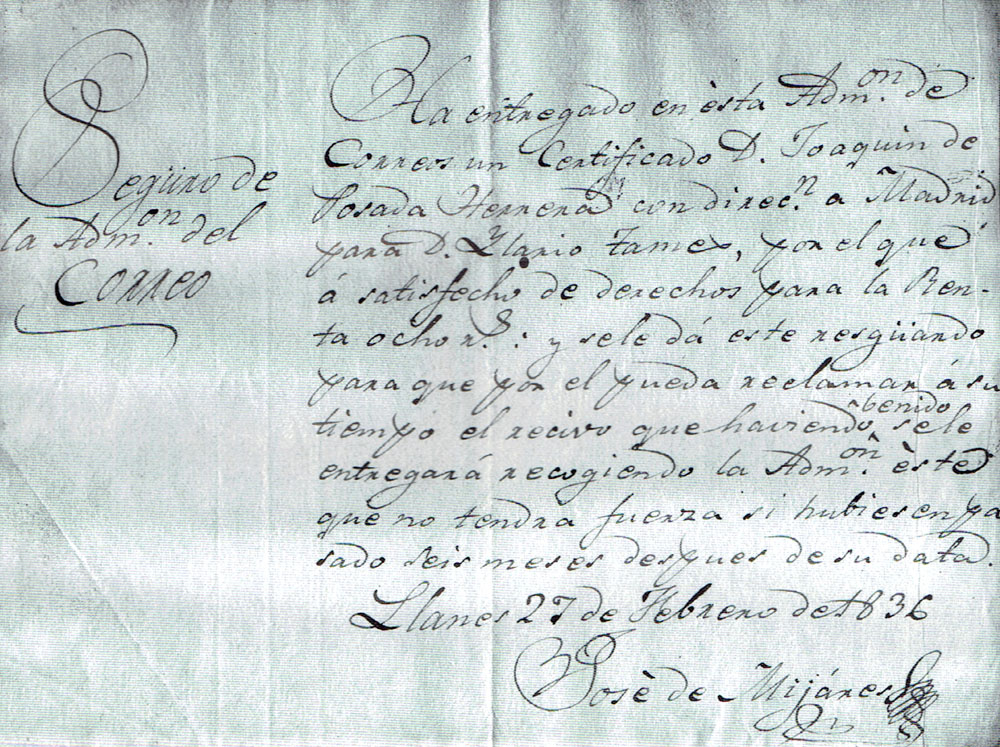 Següro de
la Adm.on del
Correo
Ha entregado en èsta Adm.on de
Correos un Certificado D. Joaquin de
Posada Herrera con direc.n a Madrid
para D. Ylario Tamex, por el que
á satisfecho de derechos para la Ren-
ta ocho r.s : y sele dá este resgüardo
para que por el pueda reclamar á su
tiempo el recivo que haviendo benido sele
entregará recogiendo la Adm.on èste
que no tendra fuerza si hubiesen pa
sado seis meses despues de su data.
Llanes 27 de Febrero de 1836
Josè de Mijáres